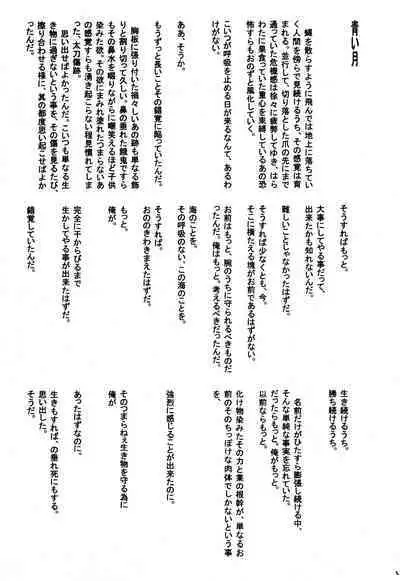 青い月
蠅を散らすように飛んでは地上に落ちてい
く人間を傍らで見続けるうち、その感覚は育
まれる。並行して、切り落とした爪の先にまで
通っていた危機感は徐々に疲弊してゆき、はら
わたに巣食っていた重心を束縛しているあの恐
怖すらもおのずと風化していく。
こいつが呼吸を止める日が来るなんて、あるわ
けがない。
ああ、そうか。
もうずっと長いことその錯覚に陥っていたんだ。
胸板に張り付いた禍々しいあの跡も単なる飾
りと捩り切って久しい。鼻の垂れた餓鬼ですら
もその鼻水を啜りながらに嘲笑えるほど子供
染みた欲。その欲にまみれ塗れたつまらないあ
の感覚すらも湧き起こらない程見慣れてしま
った、太刀傷跡。
思い出せばよかったんだ。こいつも単なる生
き物に過ぎないという事を、その傷を見るたび、
擦り合わせる様に、真の都度思い起こせばよか
ったんだ。
そうすればもっと。
大事にしてやる事だって、
出来たかも知れないんだ。
難しいことじゃなかったはずだ。
そうすれば少なくとも、今。
そこに横たえる塊がお前であるはずがない。
お前はもっと、腕のうちに守られるべきものだ
ったんだ。俺はもっと、考えるべきだったんだ。
海のことを。
その呼吸のない、この海のことを。
そうすれば。
おののきわきまえたはずだ。
もっと。
俺が。
完全に干からびるまで
生かしてやる事が出来たはずだ。
錯覚していたんだ。
生き続けるうち。
勝ち続けるうち。
名前だけがひたすら膨張し続ける中、
そんな単純な事実を忘れていた。
だったらもっと。俺がもっと。
以前ならもっと。
化け物染みたその力と業の根幹が、単なるお
前のそのちっぽけな肉体でしかないという事
を、
強烈に感じることが出来たのに。
俺が
そのつまらねぇ生き物を守る為に
あったはずなのに。
生きもすれば、の垂れ死にもする。
思い出した。
そうだ。